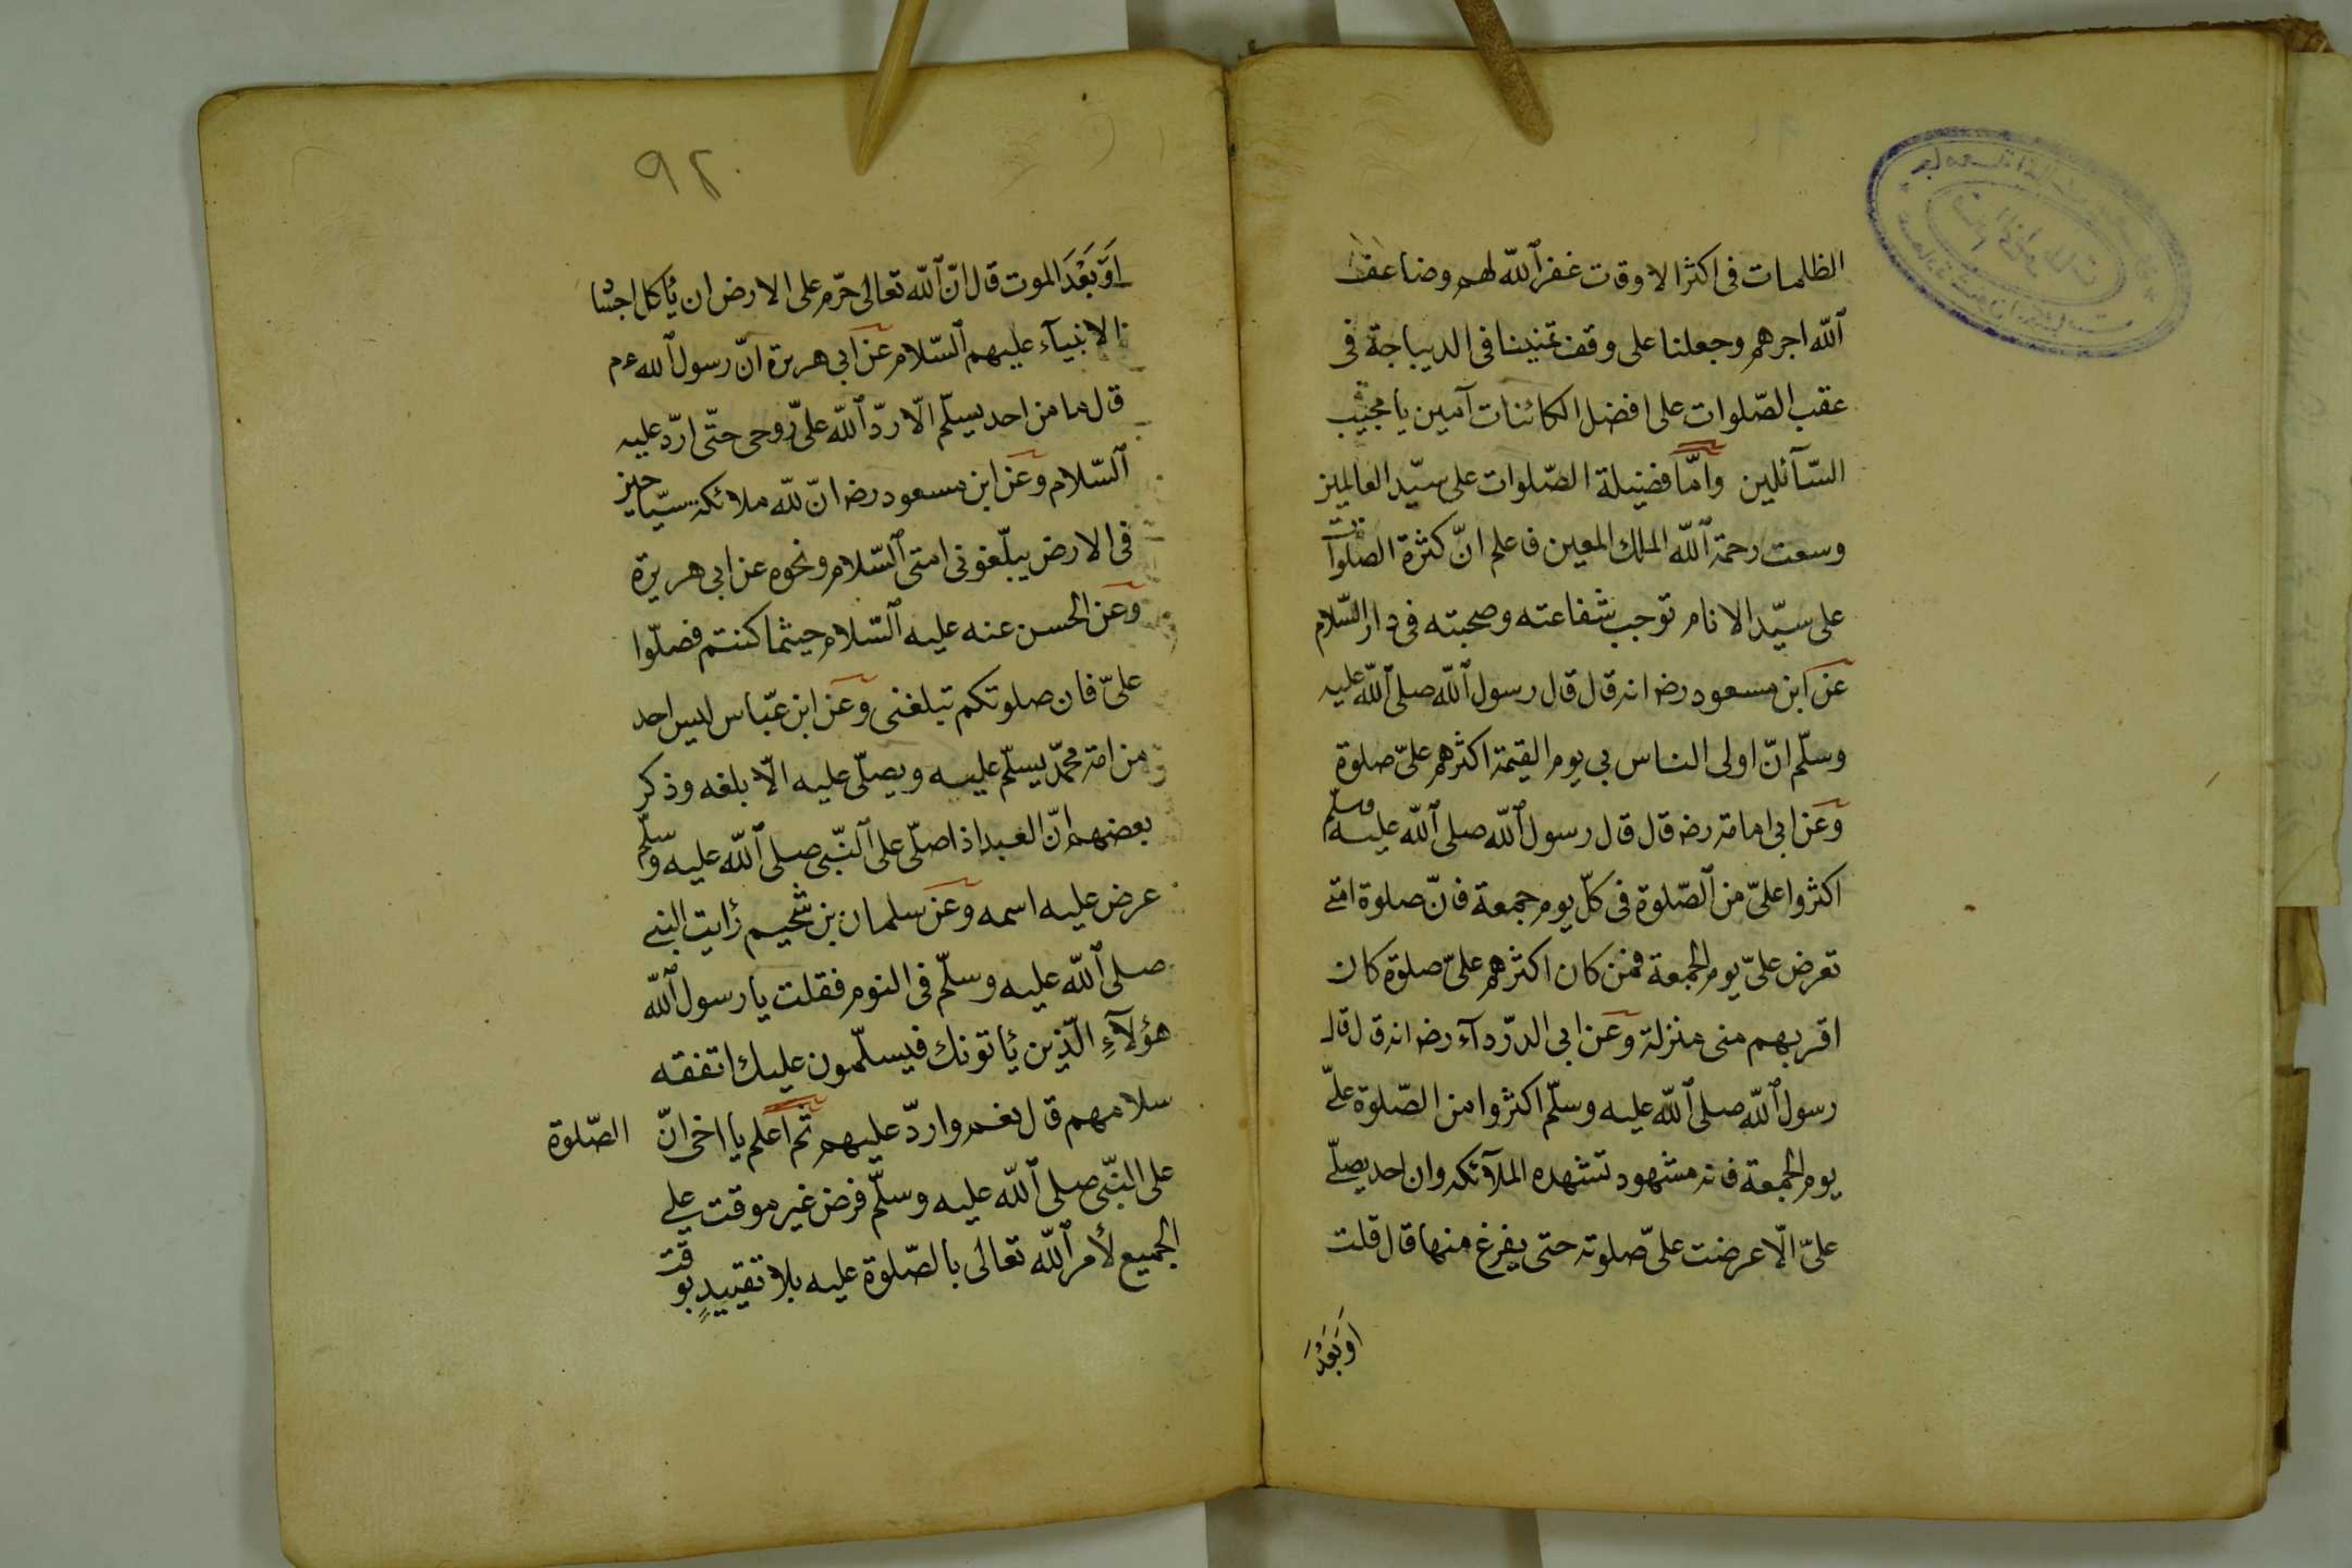 الظلمات فى اكثر الاوقات غفر ٱللّه لهم وضاعف
ٱللّه اجرهم وجعلنا على وقف تمنينا فى الديباجة فى
عقب الصّلوات على افضل الكائنات آمين يا مجيب
السّآئلين وامّا فضيلة الصّلوات على سيّد العالمين
وسعت رحمة ٱللّه الملك المعين فاعلم انّ كثرة الصّلوات
على سيّد الانام توجب شفاعته وصحبته فى دار السّلام
عن ابن مسعود رضه انه قال قال رسول ٱللّه صلى ٱللّه عليه
وسلّم انّ اولى الناس بى يوم القيمة اكثرهم علىّ صلوة
وعن ابى امامة رضه قال قال رسول ٱللّه صلى ٱللّه عليه وسلّم
اكثروا علىّ من ٱلصّلوة فى كلّ يوم جمعة فانّ صلوة امتى
تعرض علىّ يوم الجمعة فمن كان اكثرهم علىّ صلوة كان
اقربهم منى منزلة وعن ابى الدرّدآء رضه انه قال قال
رسول ٱللّه صلى ٱللّه عليه وسلّم اكثروا من الصّلوة علىّ
يوم الجمعة فانه مشهود تشهده الملآئكه وان احد يصلّى
علىّ الّا عرضت علىّ صلوته حتى يفرغ منها قال قلت
اَوَبَعْدَ
٩٢
اَوَبَعْدَ الموت قال انّ ٱللّه تعالى حرّم على الارض ان يأكل اجسا
الانبيآء عليهم ٱلسّلام عن ابى هريرة انّ رسول ٱللّه عم
قال ما من احد يسلّم الّا ردّ ٱللّه علىّ روحى حتّى اردّ عليه
ٱلسّلام وعن ابن مسعود رضه انّ للّه ملائكة سيّاحين
فى الارض يبلّغونى امتى ٱلسّلام ونحوه عن ابى هريرة
وعن الحسن عنه عليه ٱلسّلام حيثما كنتم فصلّوا
علىّ فان صلوتكم تبلغنى وعن ابن عبّاس ليس احد
من امة محمّد يسلّم عليه ويصلّى عليه الّا بلغه وذكر
بعضهم انّ العبد اذا صلّى على ٱلنّبى صلى ٱللّه عليه وسلّم
عرض عليه اسمه وعن سلمان بن شحيم رأيت النبى
صلى ٱللّه عليه وسلّم فى النوم فقلت يا رسول ٱللّه
هؤلآءِ الّذين يأتونك فيسلّمون عليك اتفقه
سلامهم قال نعم واردّ عليهم ثم اعلم يا اخى انّ الصّلوة
على النّبى صلى ٱللّه عليه وسلّم فرض غير موقت على
الجميع لأمر ٱللّه تعالى بالصّلوة عليه بلا تقييدٍ بوقت